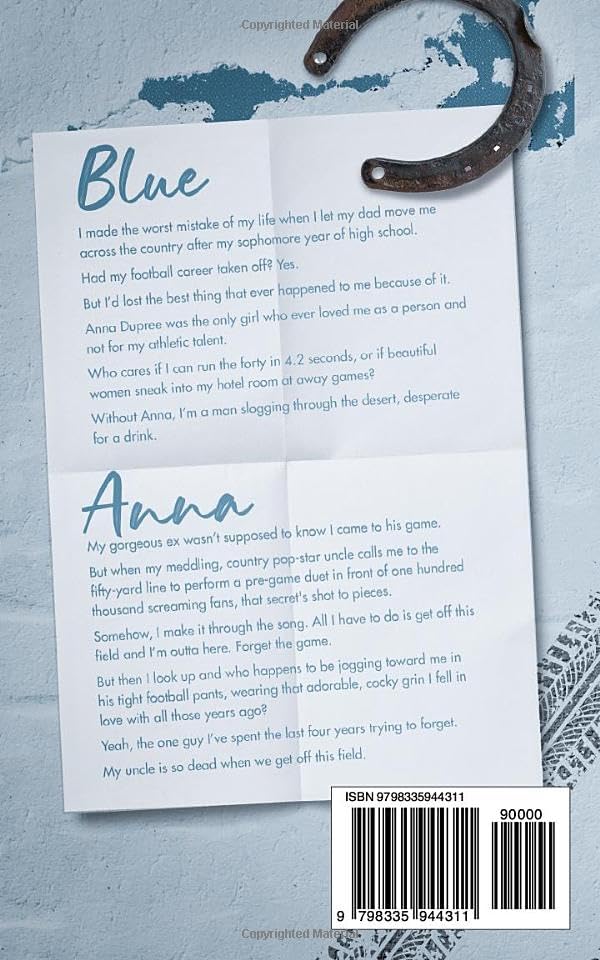 Copyrighted Material
Blue
I made the worst mistake of my life when I let my dad move me
across the country after my sophomore year of high school.
Had my football career taken off? Yes.
But I'd lost the best thing that ever happened to me because of it.
Anna Dupree was the only girl who ever loved me as a person and
not for my athletic talent.
Who cares if I can run the forty in 4.2 seconds, or if beautiful
women sneak into my hotel room at away games?
Without Anna, I'm a man slogging through the desert, desperate
for a drink.
Anna
My gorgeous ex wasn't supposed to know I came to his game.
But when my meddling, country pop-star uncle calls me to the
fifty-yard line to perform a pre-game duet in front of one hundred
thousand screaming fans, that secret's shot to pieces.
Somehow, I make it through the song. All I have to do is get off this
field and I'm outta here. Forget the game.
But then I look up and who happens to be jogging toward me in
his tight football pants, wearing that adorable, cocky grin I fell in
love with all those years ago?
Yeah, the one guy I've spent the last four years trying to forget.
My uncle is so dead when we get off this field.
ISBN 9798335944311
90000
9 798335 944311
Copyrighted Material